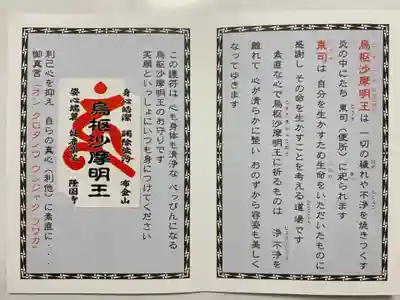 烏枢沙摩明王は 一切の穢れや不浄を焼きつくす
炎の中にたち 東司(便所)に祀られます
東司は 自分を生かすため生命をいただいたものに
感謝し その命を生かすことを考える道場です
素直な心で烏枢沙摩明王に祈るものは 浄 不浄を
離れて 心が清らかに整い おのずから容姿も美しく
なってゆきます
この護符は 心も身体も清浄な べっぴんになる
烏枢沙摩明王のお守りです
笑顔といっしょにいつも身につけてください
身心皓潔 諸除
布金山
烏枢沙摩明王
姿心端麗
隆国寺
利己心を抑え 自らの真心(利他)に素直に・・・
御真言「オン クロダノウ ウンジャク ソワカ」